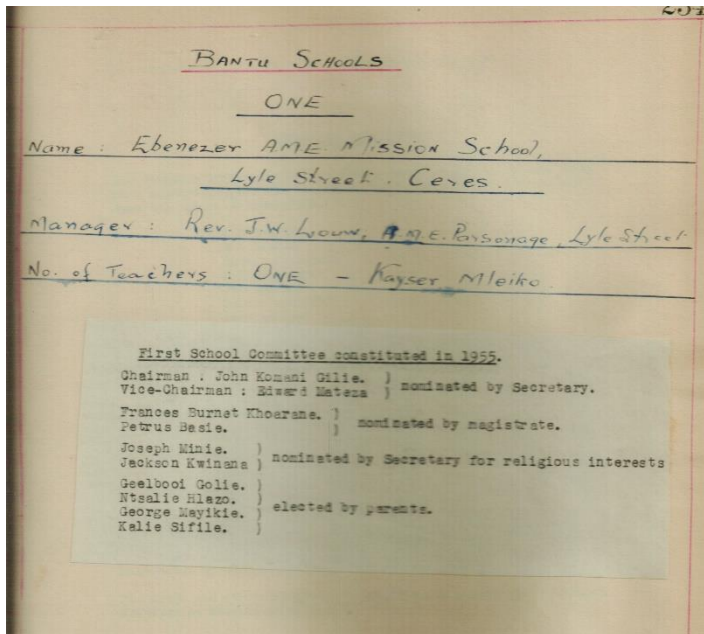 BANTU SCHOOLS
ONE
Name : Ebenezer AME. Mission School,
Lyle Street. Ceres.
Manager : Rev. J.W. Louw, A.M.E. Parsonage, Lyle Street
No. of Teachers : ONE - Kayser Mleiko.
First School Committee constituted in 1955.
Chairman : John Komani Gilie. )
Vice-Chairman : Edward Mateza ) nominated by Secretary.
Frances Burnet Khoarane. )
Petrus Basie. ) nominated by magistrate.
Joseph Minie. )
Jackson Kwinana ) nominated by Secretary for religious interests
Geelbooi Golie. )
Ntsalie Hlazo. )
George Mayikie. ) elected by parents.
Kalie Sifile. )